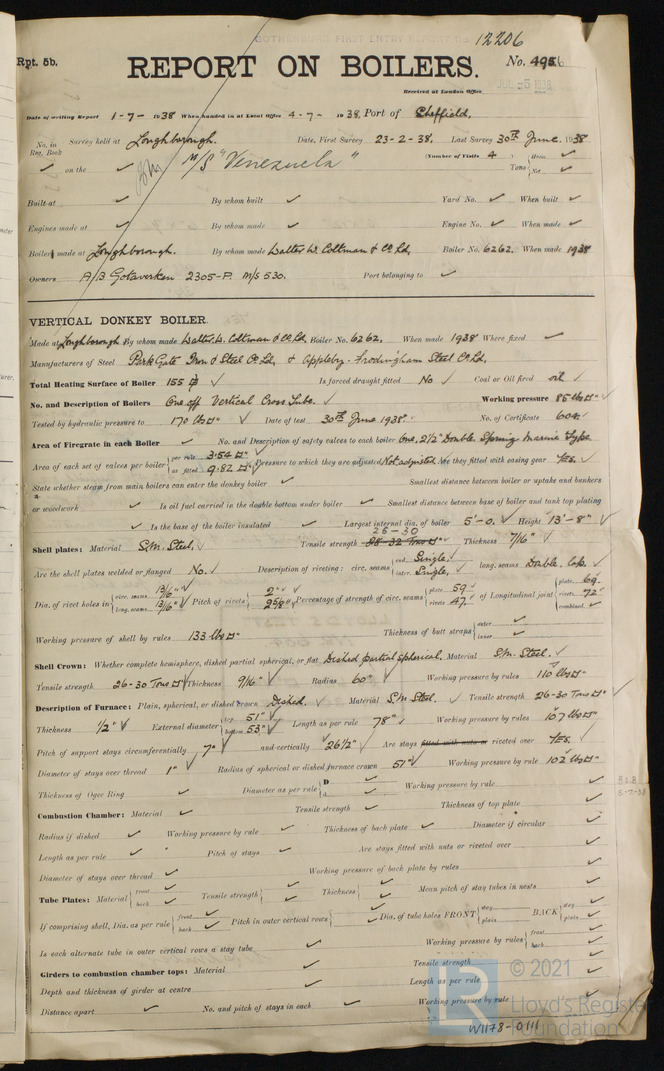 GOTHENBURG FIRST ENTRY REPORT No. 12206
Rpt. 5b.
REPORT ON BOILERS.
No. 4956
JUL -5 1938
Received at London Office
Date of writing Report 1-7-1938 When handed in at Local Office 4-7-1938 Port of Sheffield.
No. in Reg. Book Survey held at Loughborough. Date, First Survey 23-2-38. Last Survey 30th June 1938
(Number of Visits 4)
on the M/S "Venezuela" Tons Gross Net
Built at By whom built Yard No. When built
Engines made at By whom made Engine No. When made
Boilers made at Loughborough. By whom made Walter W. Coltman & Co Ld, Boiler No. 6262. When made 1938
Owners A/B Gotaverken 2305-P. M/S 530. Port belonging to
VERTICAL DONKEY BOILER.
Made at Loughborough By whom made Walter W. Coltman & Co Ld, Boiler No. 6262. When made 1938 Where fixed
Manufacturers of Steel Park Gate Iron & Steel Co Ld, & Appleby-Frodingham Steel Co Ld
Total Heating Surface of Boiler 155 □' Is forced draught fitted No Coal or Oil fired oil
No. and Description of Boilers One off Vertical Cross Tube. Working pressure 85 lbs □"
Tested by hydraulic pressure to 170 lbs □" Date of test 30th June 1938. No. of Certificate 604
Area of Firegrate in each Boiler No. and Description of safety valves to each boiler One, 2½" Double Spring Marine Type
Area of each set of valves per boiler per rule 3.54 □" as fitted 9.82 □" Pressure to which they are adjusted Not adjusted Are they fitted with easing gear Yes.
State whether steam from main boilers can enter the donkey boiler Smallest distance between boiler or uptake and bunkers
or woodwork Is oil fuel carried in the double bottom under boiler Smallest distance between base of boiler and tank top plating
Is the base of the boiler insulated Largest internal dia. of boiler 5'-0. Height 13'-8"
Shell plates: Material S.M. Steel. Tensile strength 28-32 Tons □" 26-30 Thickness 7/16"
Are the shell plates welded or flanged No. Description of riveting: circ. seams end Single. inter. Single, long. seams Double. Lap.
Dia. of rivet holes in circ. seams 13/16" long. seams 13/16" Pitch of rivets 2" 2⅝" Percentage of strength of circ. seams plate 59 rivets 47 of Longitudinal joint plate 69. rivets 72 combined
Working pressure of shell by rules 133 lbs □" Thickness of butt straps outer inner
Shell Crown: Whether complete hemisphere, dished partial spherical, or flat Dished partial spherical. Material S.M. Steel.
Tensile strength 26-30 Tons □" Thickness 9/16" Radius 60" Working pressure by rules 110 lbs □"
Description of Furnace: Plain, spherical, or dished crown Dished. Material S.M. Steel. Tensile strength 26-30 Tons □"
Thickness ½" External diameter top 51" bottom 53" Length as per rule 78" Working pressure by rules 107 lbs □"
Pitch of support stays circumferentially 7" and vertically 26½" Are stays fitted with nuts or riveted over Yes.
Diameter of stays over thread 1" Radius of spherical or dished furnace crown 51" Working pressure by rule 102 lbs □"
Thickness of Ogee Ring Diameter as per rule D d Working pressure by rule
Combustion Chamber: Material Tensile strength Thickness of top plate
Radius if dished Working pressure by rule Thickness of back plate Diameter if circular
Length as per rule Pitch of stays Are stays fitted with nuts or riveted over
Diameter of stays over thread Working pressure of back plate by rules
Tube Plates: Material front back Tensile strength Thickness Mean pitch of stay tubes in nests
If comprising shell, Dia. as per rule front back Pitch in outer vertical rows Dia. of tube holes FRONT stay plain BACK stay plain
Is each alternate tube in outer vertical rows a stay tube Working pressure by rules front back
Girders to combustion chamber tops: Material Tensile strength
Depth and thickness of girder at centre Length as per rule
Distance apart No. and pitch of stays in each Working pressure by rule
© 2021
Lloyd's Register
Foundation
W1178-0111